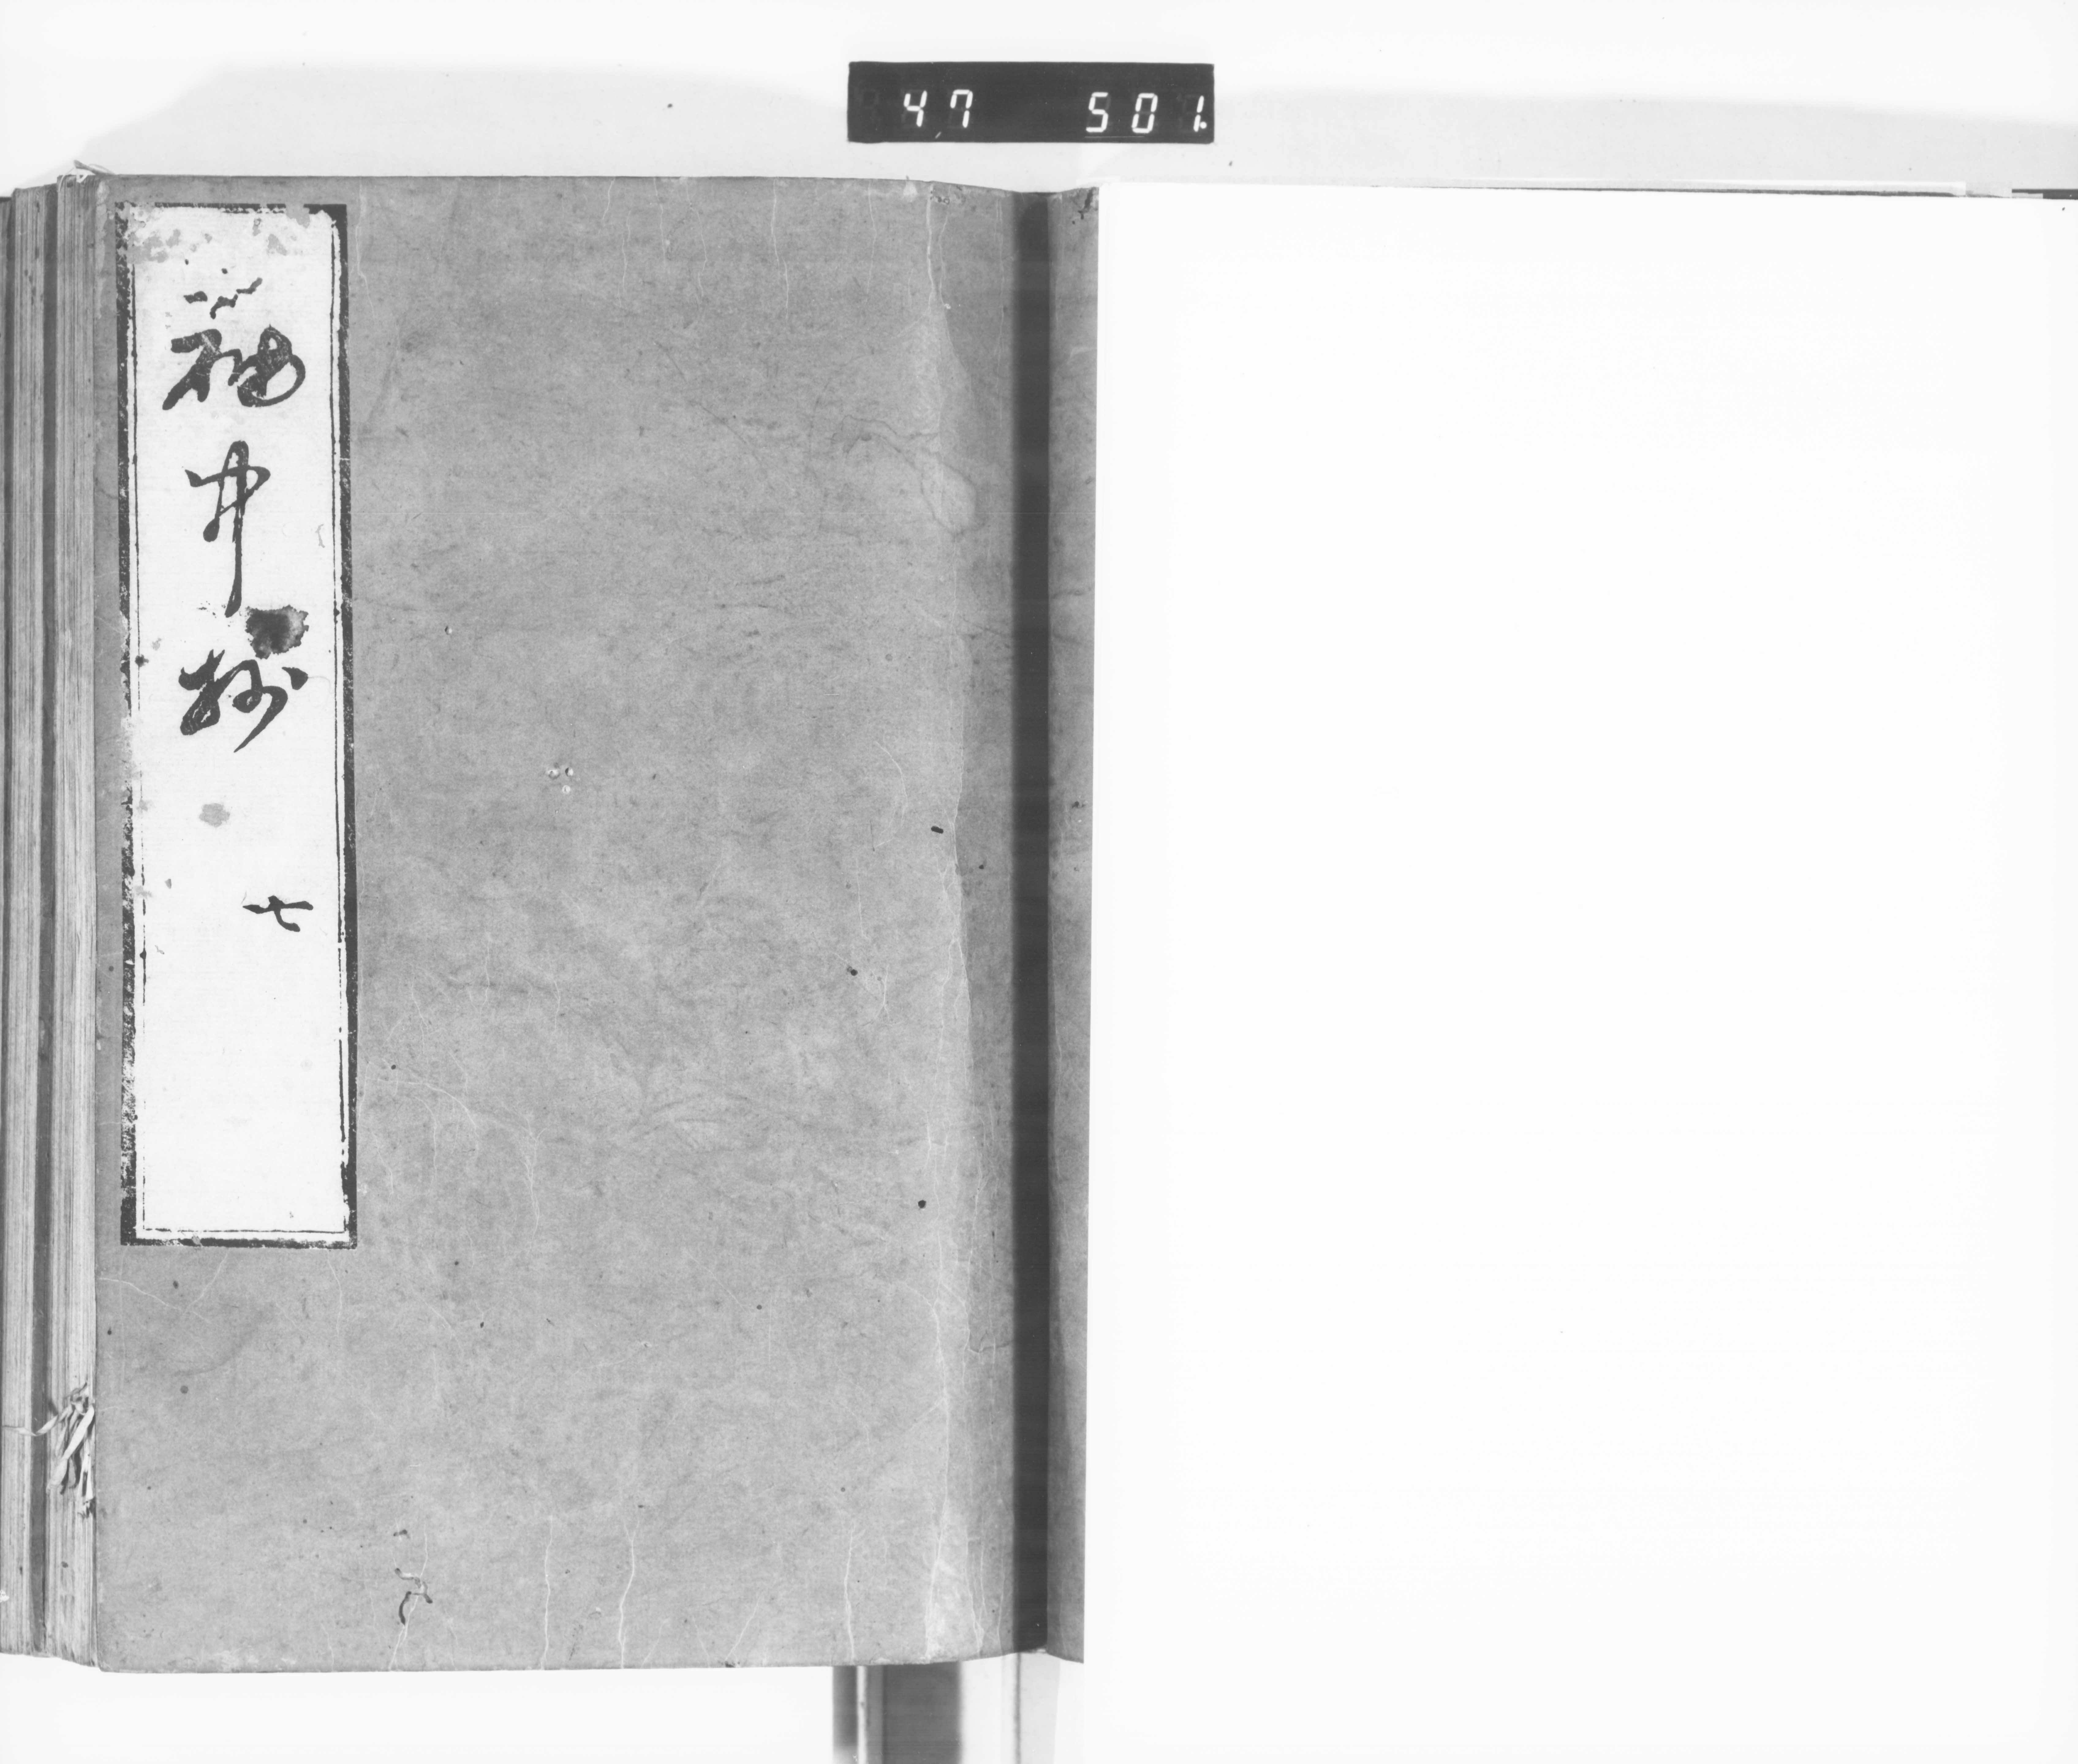 47 501.
袖中抄
七